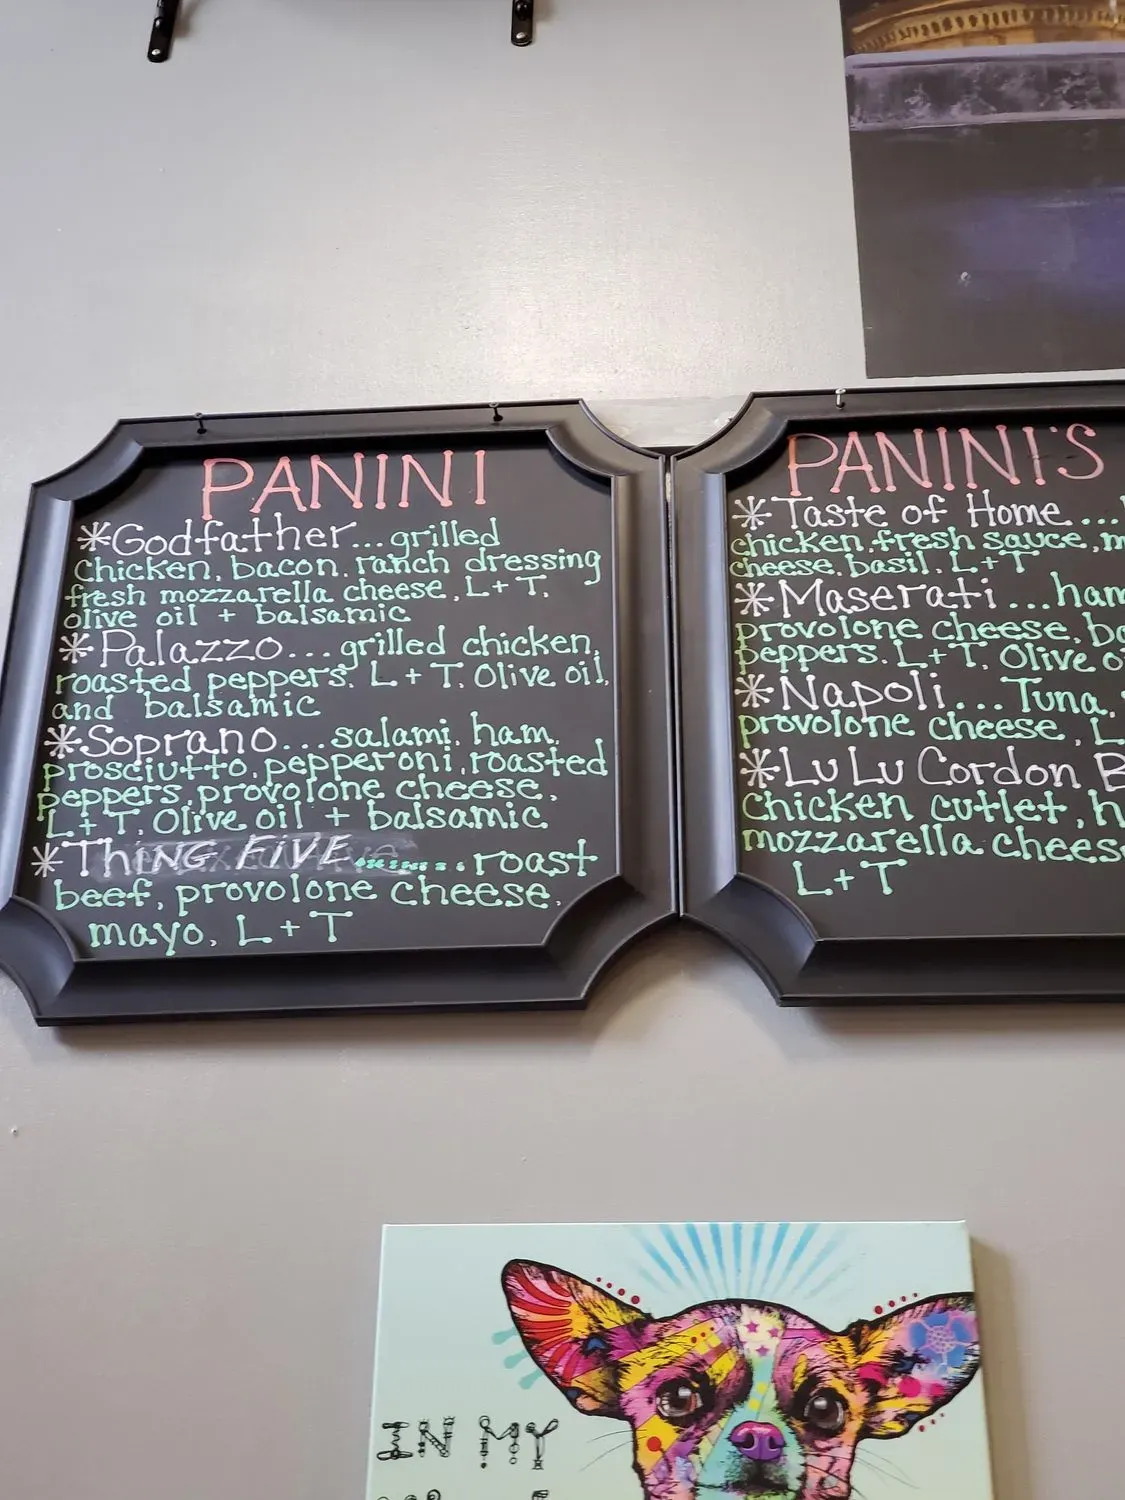 PANINI
*Godfather...grilled
chicken, bacon, ranch dressing
fresh mozzarella cheese, L+T,
olive oil + balsamic
*Palazzo...grilled chicken,
roasted peppers, L+T, Olive oil,
and balsamic
*Soprano...salami, ham,
prosciutto, pepperoni, roasted
peppers, provolone cheese,
L+T, Olive oil + balsamic
*ThING FIVE..........roast
beef, provolone cheese,
mayo, L+T
PANINI'S
*Taste of Home...
chicken, fresh sauce,
cheese, basil, L+T
*Maserati...ham
provolone cheese,
peppers, L+T, Olive
*Napoli...Tuna,
provolone cheese, L
*LuLu Cordon B
chicken cutlet, h
mozzarella cheese
L+T
IN MY